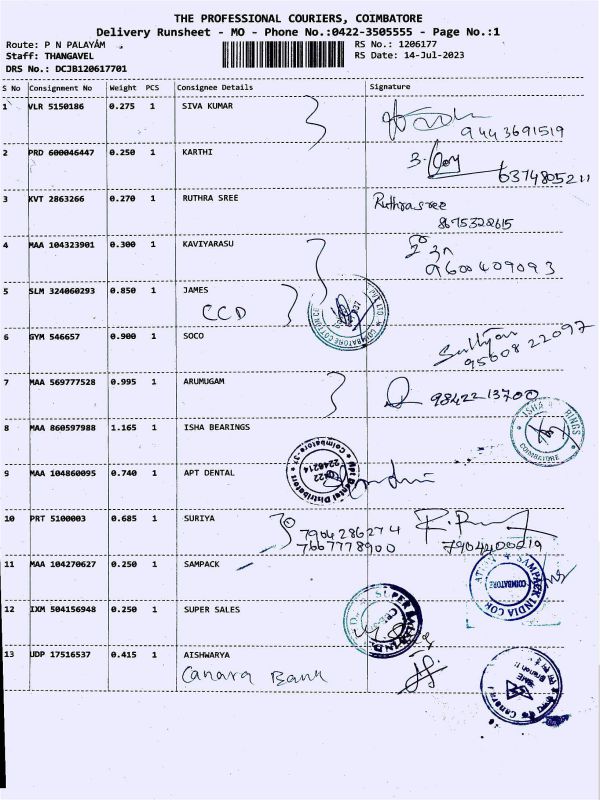 THE PROFESSIONAL COURIERS, COIMBATORE
Delivery Runsheet - MO - Phone No.:0422-3505555 - Page No.:1
Route: P N PALAYAM
RS No.: 1206177
Staff: THANGAVEL
RS Date: 14-Jul-2023
DRS No.: DCJB120617701
S No Consignment No Weight PCS Consignee Details Signature
1 VLR 5150186 0.275 1 SIVA KUMAR
9443691519
2 PRD 600046447 0.250 1 KARTHI
6374805211
3 KVT 2863266 0.270 1 RUTHRA SREE Ruthrasree
8675328615
4 MAA 104323901 0.300 1 KAVIYARASU
9600409093
5 SLM 324060293 0.850 1 JAMES
CCD
COIMBATORE COTTON
6 GYM 546657 0.900 1 SOCO
9560822097
7 MAA 569777528 0.995 1 ARUMUGAM
9842213700
8 MAA 860597988 1.165 1 ISHA BEARINGS
COIMBATORE
9 MAA 104860095 0.740 1 APT DENTAL
Apt Dental Distributors
10 PRT 5100003 0.685 1 SURIYA
7904286274
7667778900 7904400019
11 MAA 104270627 0.250 1 SAMPACK
SAMPACK INDIA
COIMBATORE
12 IXM 504156948 0.250 1 SUPER SALES
SUPER SALES
13 UDP 17516537 0.415 1 AISHWARYA
Canara Bank